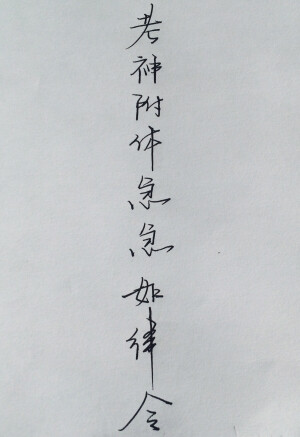 考神附体急急如律令